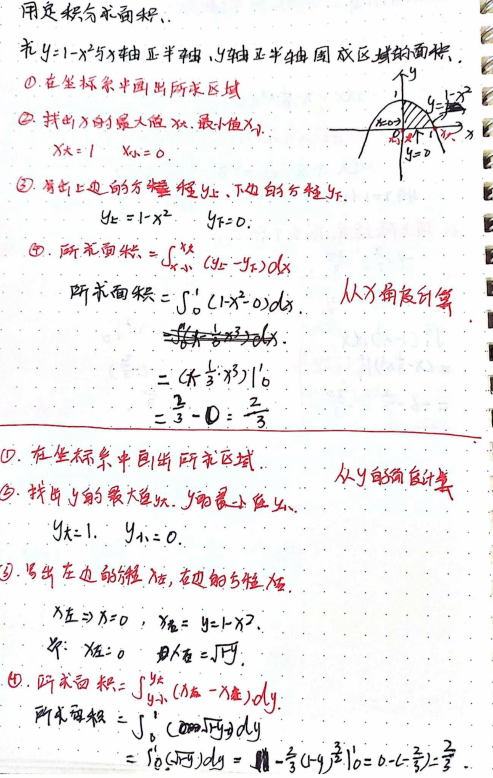 用定积分求面积.
求y=1-x²与x轴正半轴,y轴正半轴围成区域的面积.
①.在坐标系中画出所求区域
②.找出x的最大值x大.最小值x小.
x大=1 x小=0.
y
1
y=1-x²
x=0
0
1
x
y=0
③.写出上边的方程y上、下边的方程y下.
y上=1-x² y下=0.
④.所求面积=∫x小^x大 (y上-y下)dx
所求面积=∫₀¹(1-x²-0)dx.
从x角度计算
=(x-1/3·x³)|₀¹
=2/3-0=2/3
①.在坐标系中画出所求区域.
从y的角度计算
②.找出y的最大值y大.y的最小值y小.
y大=1. y小=0.
③.写出左边的方程x左,右边的方程x右.
x左⇒x=0,x右=y=1-x².
x左=0 x右=√1-y.
④.所求面积=∫y小^y大(x右-x左)dy.
所求面积=∫₀¹(√1-y)dy
=∫₀¹(√1-y)dy=-2/3(1-y)^3/2|₀¹=0-(-2/3)=2/3.